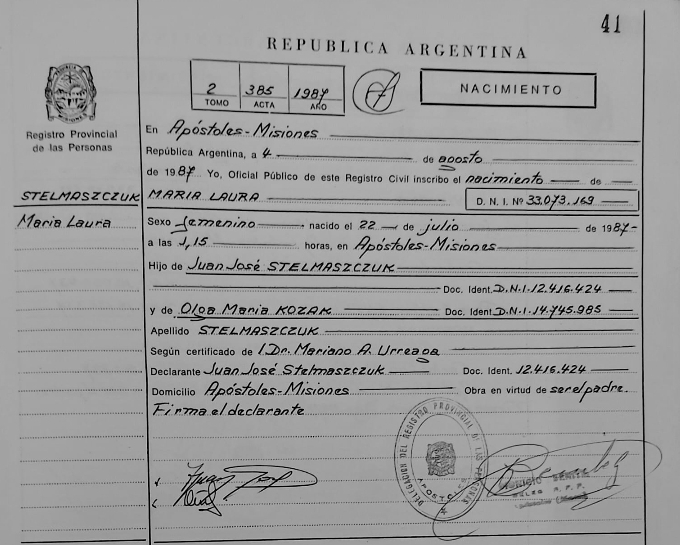 41
REPUBLICA ARGENTINA
2 385 1987
TOMO ACTA AÑO
NACIMIENTO
Registro Provincial
de las Personas
En Apóstoles-Misiones
República Argentina, a 4 de agosto
de 1987 Yo, Oficial Público de este Registro Civil inscribo el nacimiento de
STELMASZCZUK MARIA LAURA D. N. I. Nº 33.073.169
Maria Laura
Sexo femenino nacido el 22 de julio de 1987-
a las 1,15 horas, en Apóstoles-Misiones
Hijo de Juan José STELMASZCZUK
Doc. Ident. D.N.I.12.416.424
y de Olga Maria KOZAK Doc. Ident. D.N.I.14.745.985
Apellido STELMASZCZUK
Según certificado de l Dr. Mariano A. Urreaga
Declarante Juan José Stelmaszczuk Doc. Ident. 12.416.424
Domicilio Apóstoles-Misiones Obra en virtud de ser el padre.
Firma el declarante
DELEGACION DEL REGISTRO PROVINCIAL DE LAS PERSONAS